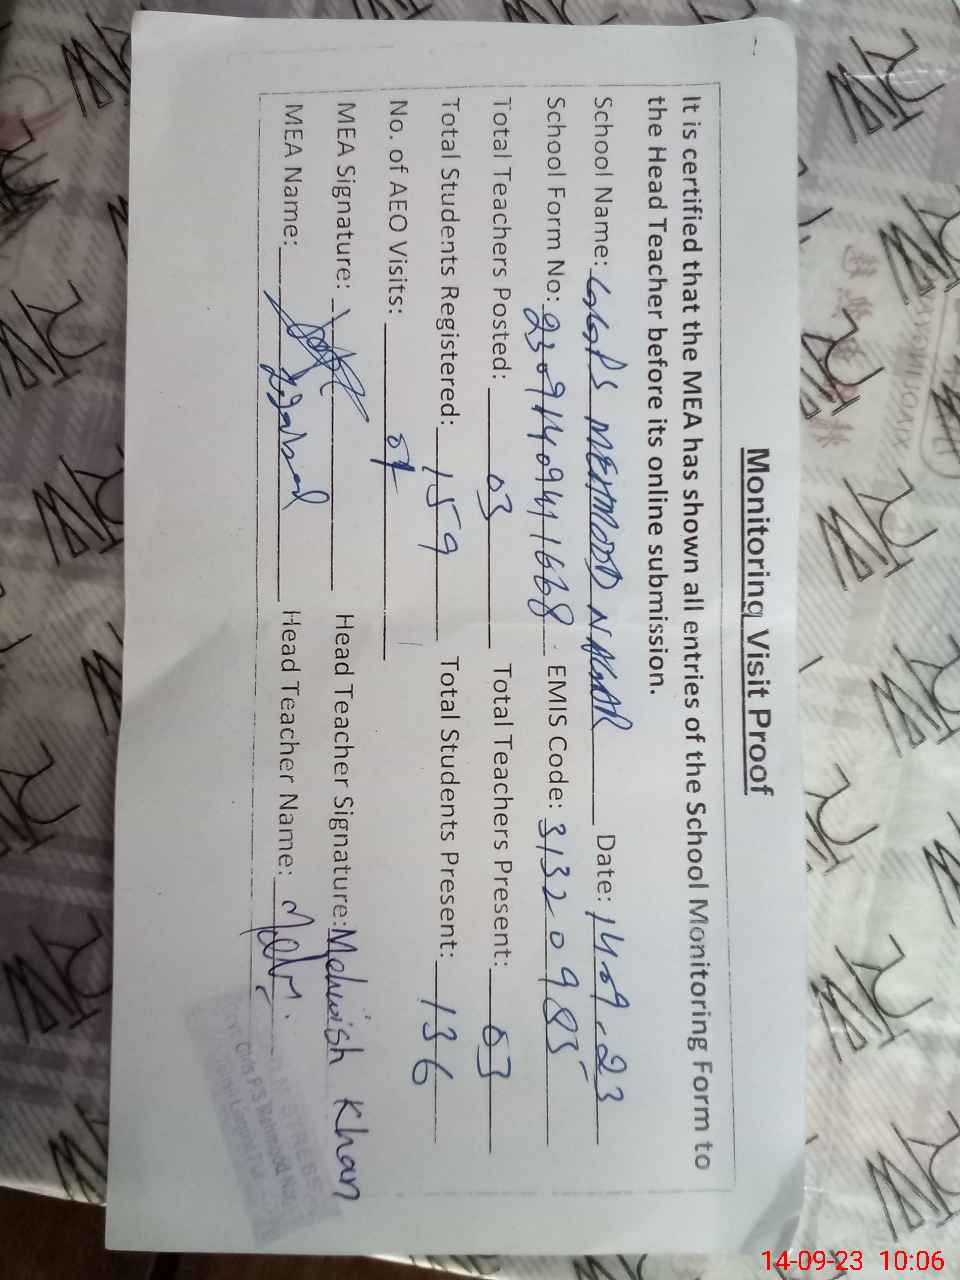 Monitoring Visit Proof
It is certified that the MEA has shown all entries of the School Monitoring Form to
the Head Teacher before its online submission.
School Name: GGPS MEHMOOD NAGAR Date: 14-09-23
School Form No: 23091409411668 EMIS Code: 31320985
Total Teachers Posted: 03 Total Teachers Present: 03
Total Students Registered: 159 Total Students Present: 136
No. of AEO Visits: 01
MEA Signature: Head Teacher Signature: Mehwish Khan
MEA Name: Head Teacher Name:
14-09-23 10:06